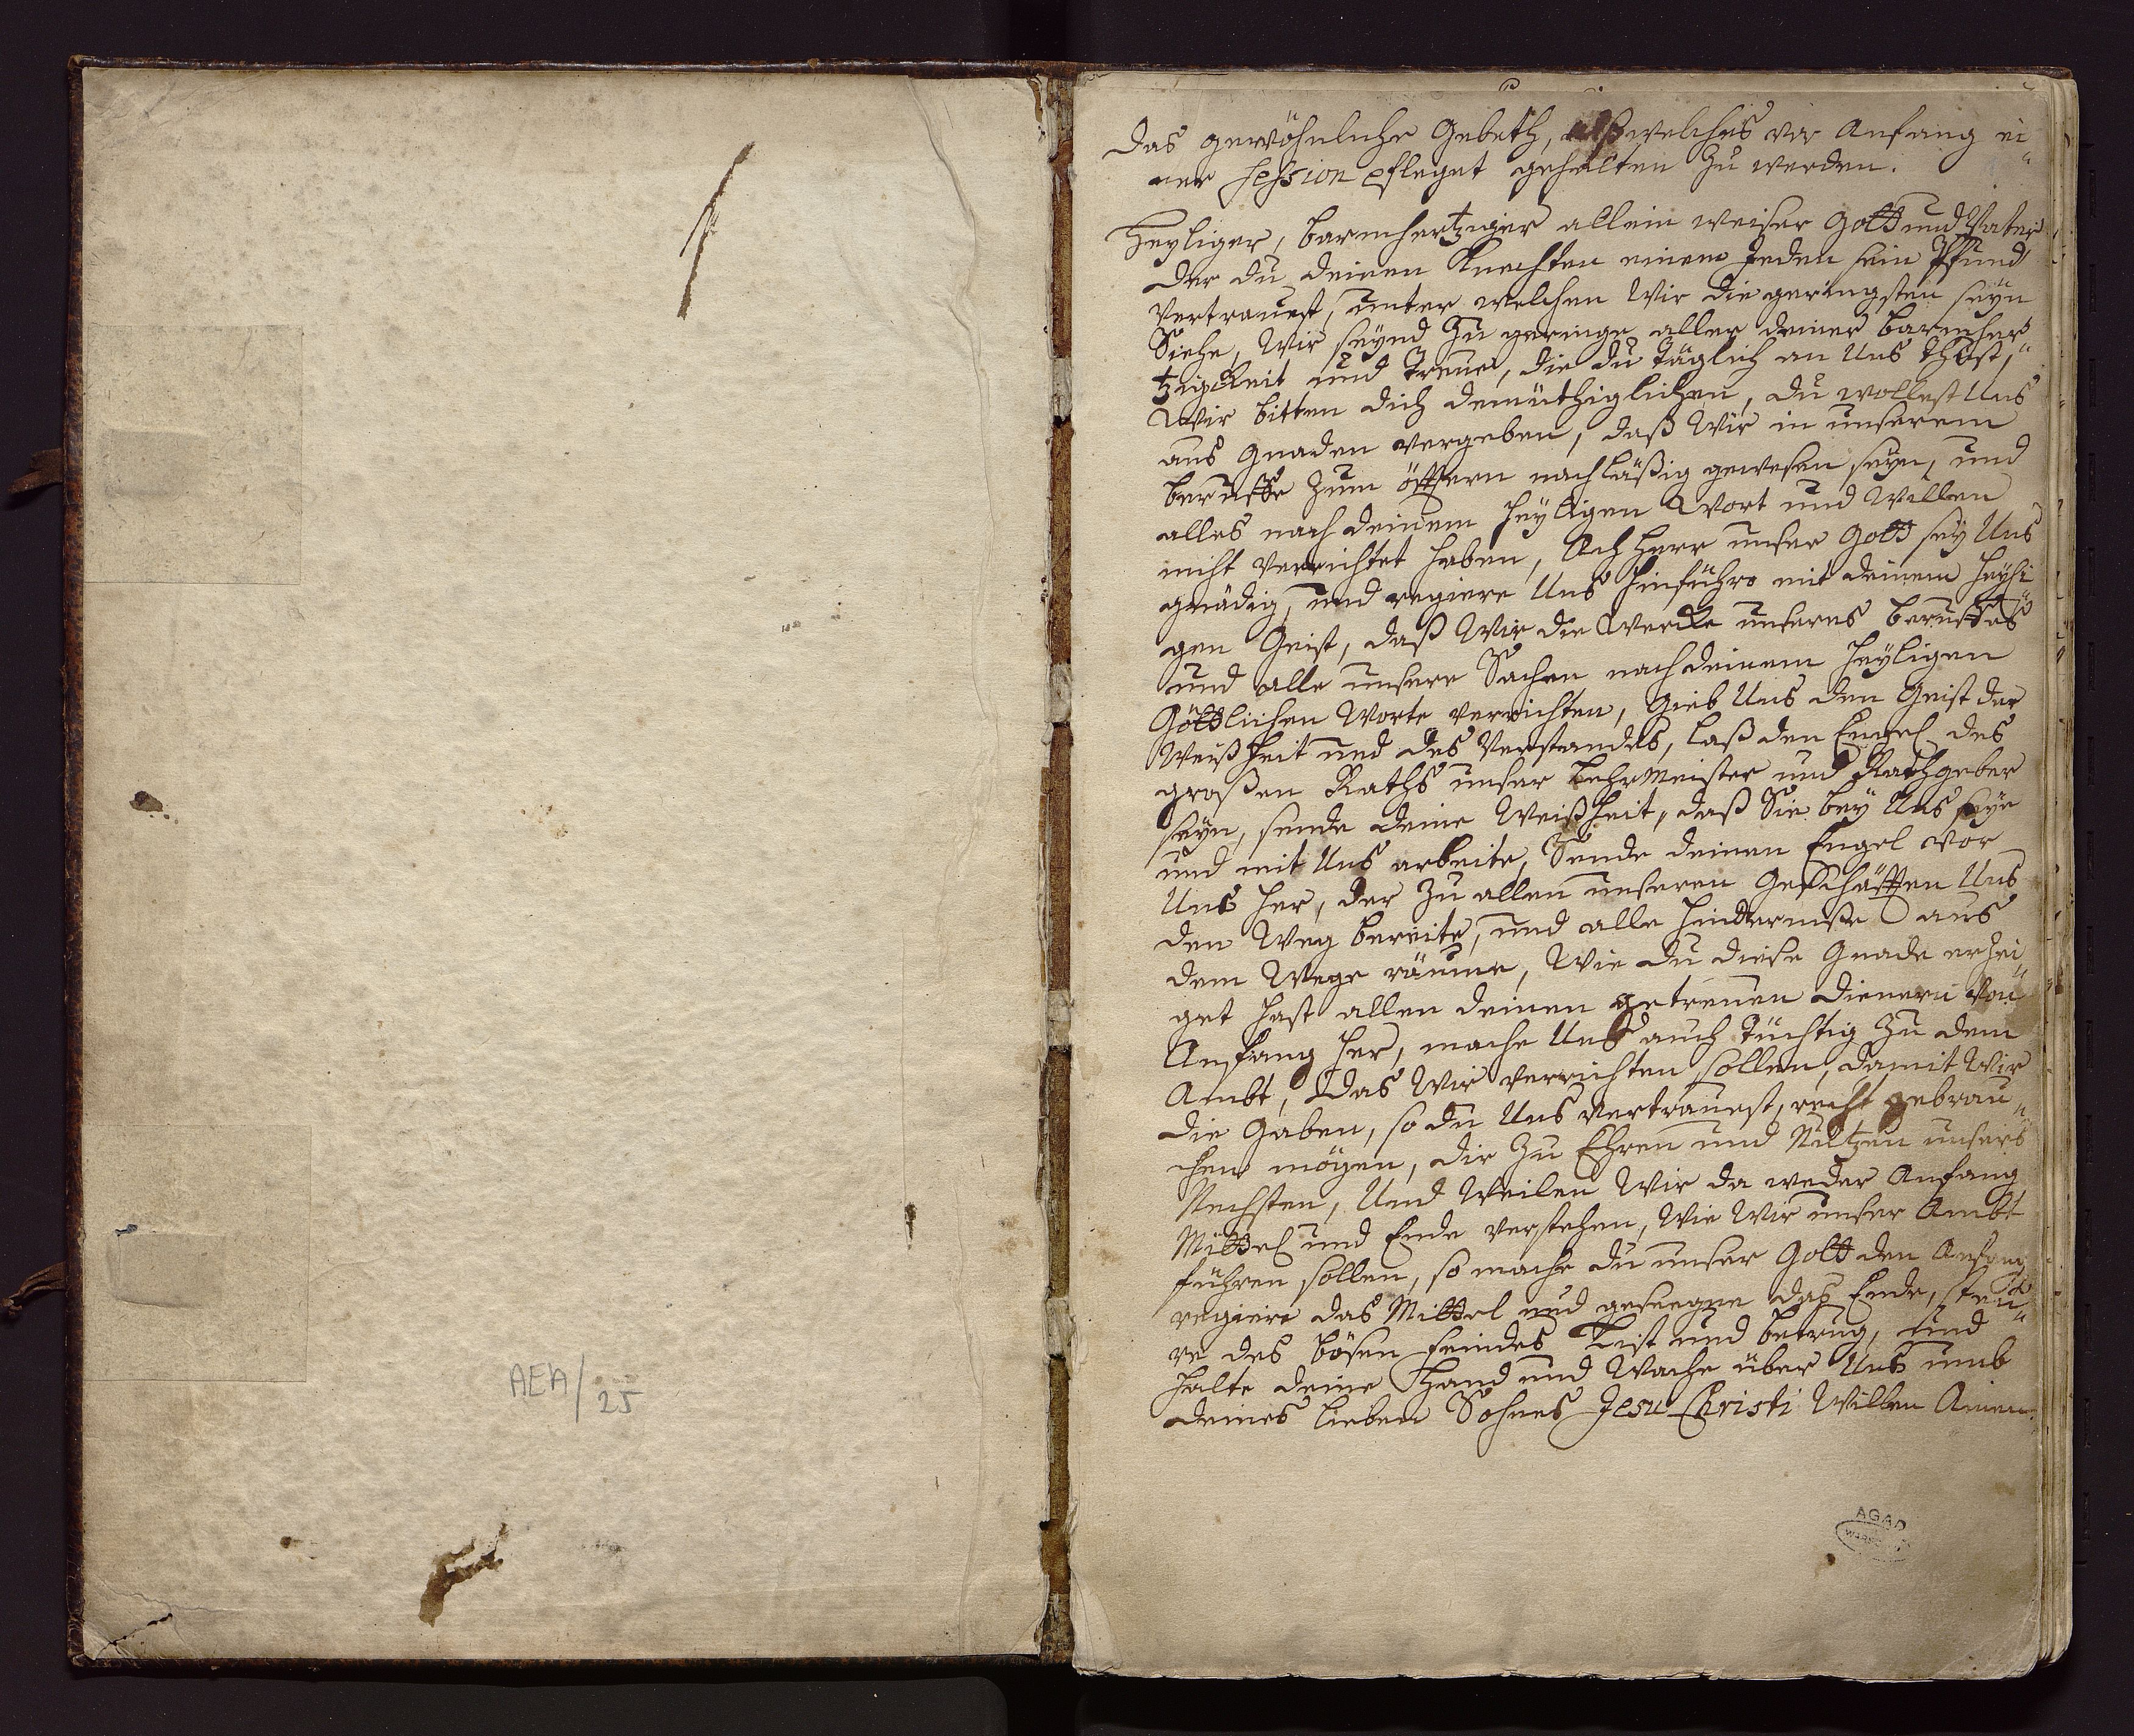 AEA/25
das gewöhnliche Gebeth, welches vor Anfang ei„
ner Session pfleget gehalten zu werden.
Heyliger, barmhertziger allein weiser Gott und Vater
der du deinen Knechten einem Jeden sein Pfund
vertrauest, unter welchen Wir die geringsten seyn
Siehe, Wir seynd zu geringe aller deiner barmher„
tzigkeit und Treue, die du täglich an Uns thust,
Wir bitten dich demüthiglichen, du wollest Uns
aus Gnaden vergeben, daß Wir in unserem
beruffe zum öfftern nachläßig gewesen seyn, und
alles nach deinem heyligen Wort und Willen
nicht verrichtet haben, Ach Herr unser Gott sey Uns
gnädig, und regiere Uns hinführo mit deinem heyli„
gen Geist, daß Wir die Wercke unseres beruffes
und alle unsere Sachen nach deinem heyligen
Göttlichen Worte verrichten, Gieb Uns den Geist der
Weißheit und des Verstandes, laß den Engel des
großen Raths unser Lehrmeister und Rathgeber
seyn, sende deine Weißheit, daß Sie bey Uns seye
und mit Uns arbeite, Sende deinen Engel vor
Uns her, der zu allen unseren Geschäfften Uns
den Weg bereite, und alle hinderniße aus
dem Wege räume, Wie du diese Gnade erzei„
get hast allen deinen getreuen dienern von
Anfang her, mache Uns auch tüchtig zu dem
Ambt, das Wir verrichten sollen, damit Wir
die Gaben, so du Uns vertrauest, recht gebrau„
chen mögen, dir zu Ehren und Nutzen unsers
Nechsten, Und Weilen Wir da weder Anfang
Mittel und Ende verstehen, Wie Wir unser Ambt
führen sollen, so mache du unser Gott den Anfang
regiere das Mittel und geseegne das Ende, steu„
re des bösen feindes List und betrug, und
halte deine Hand und Wache über Uns umb
deines lieben Sohnes Jesu Christi Willen Amen.
AGAD